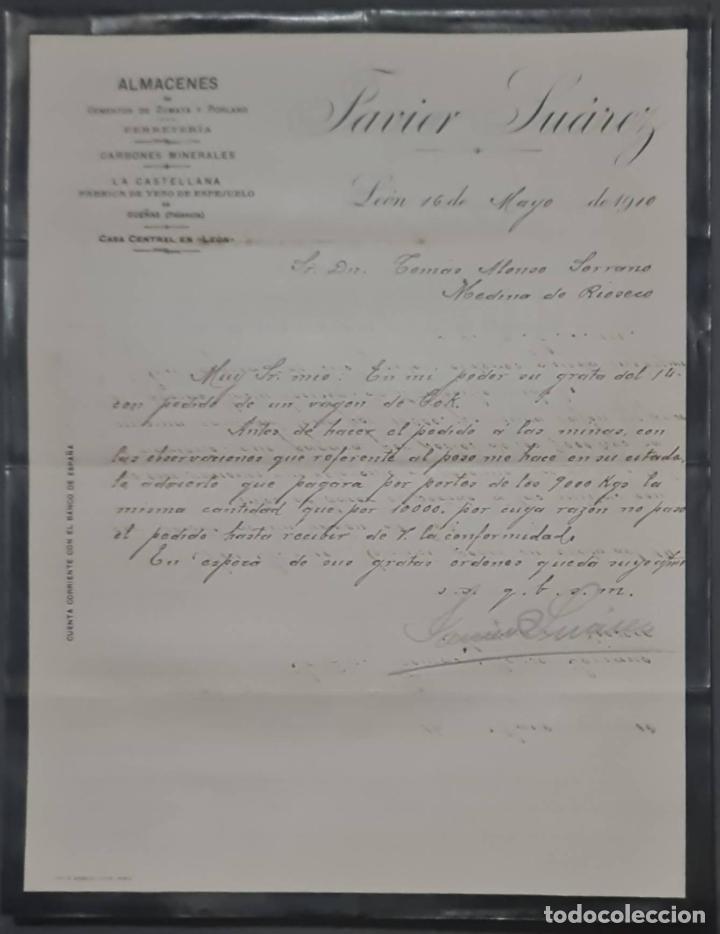 ALMACENES
DE
CEMENTOS DE ZUMAYA Y PORLAND
FERRETERÍA
CARBONES MINERALES
LA CASTELLANA
FÁBRICA DE YESO DE ESPEJUELO
EN
DUEÑAS (PALENCIA)
CASA CENTRAL EN «LEÓN»
Javier Suárez
León 16 de Mayo de 1910
Sr. Dn. Tomás Alonso Serrano
Medina de Rioseco
Muy Sr. mio: En mi poder su grata del 14
con pedido de un vagón de Cok.
Antes de hacer el pedido á las minas, con
las observaciones que referente al peso me hace en su citada,
le advierto que pagará por portes de los 9000 Kgs la
misma cantidad que por 10000. por cuya razón no paso
el pedido hasta recibir de V. la conformidad.
En espera de sus gratas ordenes queda suyo
s.s. q. b. s. m.
Javier Suárez
CUENTA CORRIENTE CON EL BANCO DE ESPAÑA
todocoleccion